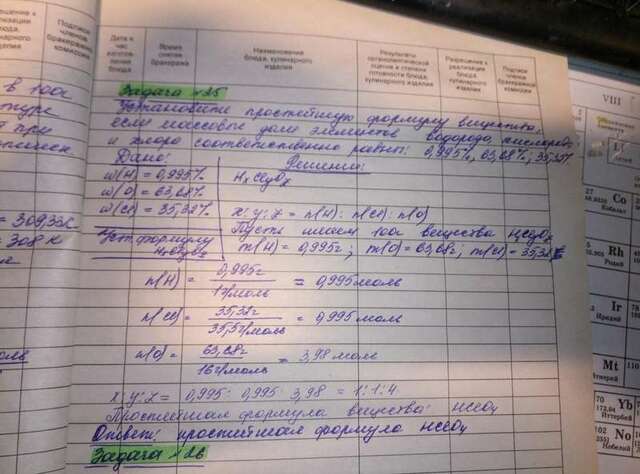 Дата и час изготовления блюда
Время снятия бракеража
Наименование блюда, кулинарного изделия
Результаты органолептической оценки и степени готовности блюда, кулинарного изделия
Разрешение к реализации блюда кулинарного изделия
Подписи членов бракеражной комиссии
Задача №25
Установите простейшую формулу вещества,
если массовые доли элементов водорода, кислорода
и хлора соответственно равны: 0,995%, 63,68%, 35,32%
Дано: Решение:
ω(H) = 0,995% HxClyOz
ω(O) = 63,68%
ω(Cl) = 35,32% x:y:z = n(H):n(Cl):n(O)
Уст. формулу Пусть имеем 100г вещества HClO
HxClyOz m(H) = 0,995г; m(O) = 63,68г; m(Cl) = 35,32г
n(H) = 0,995г / 1г/моль = 0,995моль
n(Cl) = 35,32г / 35,5г/моль = 0,995моль
n(O) = 63,68г / 16г/моль = 3,98 моль
x:y:z = 0,995 : 0,995 : 3,98 = 1:1:4
Простейшая формула вещества: HClO4
Ответ: простейшая формула HClO4
Задача №26
VIII
27 Co
Кобальт
Rh
Родий
Ir
Иридий
Mt 110
Мейтнерий
70 Yb
173,04
Иттербий
102 No
Нобелий